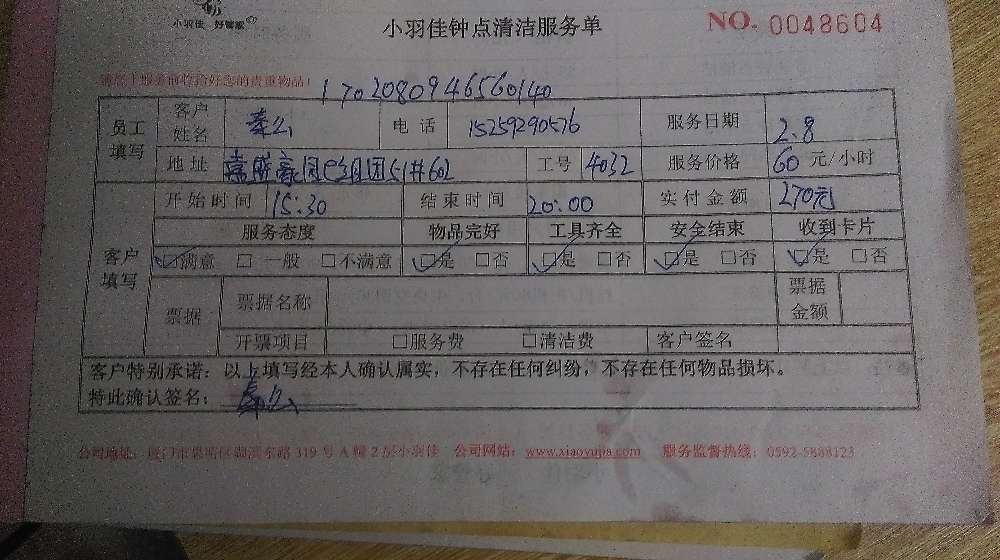 小羽佳 好管家
小羽佳钟点清洁服务单
NO. 0048604
服务前收拾好您的贵重物品！
17020809465660140
员工填写 客户姓名 秦么 电话 15259290576 服务日期 2.8
地址 嘉盛豪园C组团51#602 工号 4032 服务价格 60元/小时
客户填写 开始时间 15:30 结束时间 20:00 实付金额 270元
服务态度 物品完好 工具齐全 安全结束 收到卡片
☑满意 □一般 □不满意 ☑是 □否 ☑是 □否 ☑是 □否 ☑是 □否
票据 票据名称 票据金额
开票项目 □服务费 □清洁费 客户签名
客户特别承诺：以上填写经本人确认属实，不存在任何纠纷，不存在任何物品损坏。
特此确认签名：秦么
公司地址：厦门市思明区湖滨东路319号A幢2层小羽佳 公司网站：www.xiaoyujia.com 服务监督热线：0592-5888123